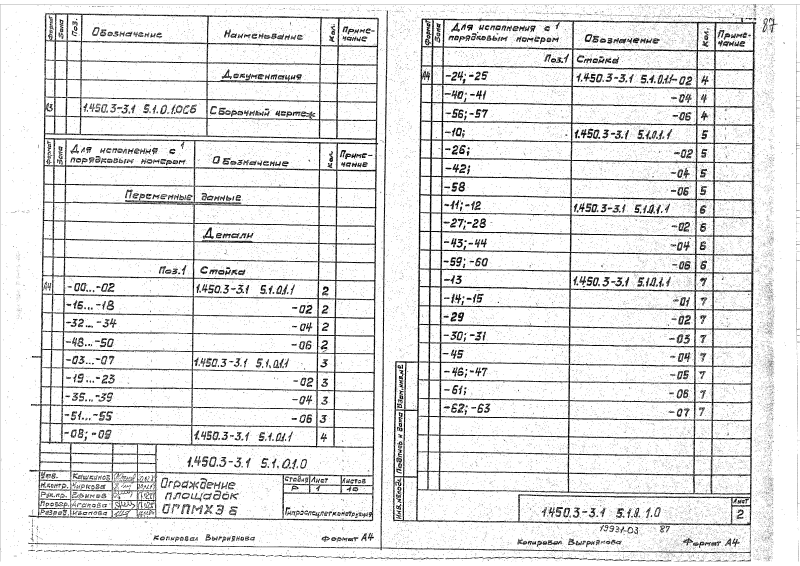 Формат Зона Поз. Обозначение Наименование Кол. Приме-чание
Документация
А3 1.450.3-3.1 5.1.0.1.0СБ Сборочный чертеж
Формат Зона Для исполнения с порядковым номером 1 Обозначение Кол. Приме-чание
Переменные данные
Детали
Поз.1 Стойка
А4 -00...-02 1.450.3-3.1 5.1.0.1.1 2
-16...-18 -02 2
-32...-34 -04 2
-48...-50 -06 2
-03...-07 1.450.3-3.1 5.1.0.1.1 3
-19...-23 -02 3
-35...-39 -04 3
-51...-55 -06 3
-08; -09 1.450.3-3.1 5.1.0.1.1 4
1.450.3-3.1 5.1.0.1.0
Утв. Кашкинов
Н.контр. Чиркова
Рук.пр. Ефимов
Провер. Агапова
Разраб. Иванова
Ограждение
площадок
ОГПМХЭБ
Стадия Лист Листов
Р 1 10
Гипроспецлегконструкция
Копировал Выгриянова Формат А4
87
Формат Зона Для исполнения с порядковым номером 1 Обозначение Кол. Приме-чание
Поз.1 Стойка
А4 -24; -25 1.450.3-3.1 5.1.0.1.1-02 4
-40; -41 -04 4
-56; -57 -06 4
-10; 1.450.3-3.1 5.1.0.1.1 5
-26; -02 5
-42; -04 5
-58 -06 5
-11; -12 1.450.3-3.1 5.1.0.1.1 6
-27; -28 -02 6
-43; -44 -04 6
-59; -60 -06 6
-13 1.450.3-3.1 5.1.0.1.1 7
-14; -15 -01 7
-29 -02 7
-30; -31 -03 7
-45 -04 7
-46; -47 -05 7
-61; -06 7
-62; -63 -07 7
Инв.№подл. Подпись и дата Взам.инв.№
1.450.3-3.1 5.1.0.1.0
Лист
2
19931-03 87
Копировал Выгриянова Формат А4